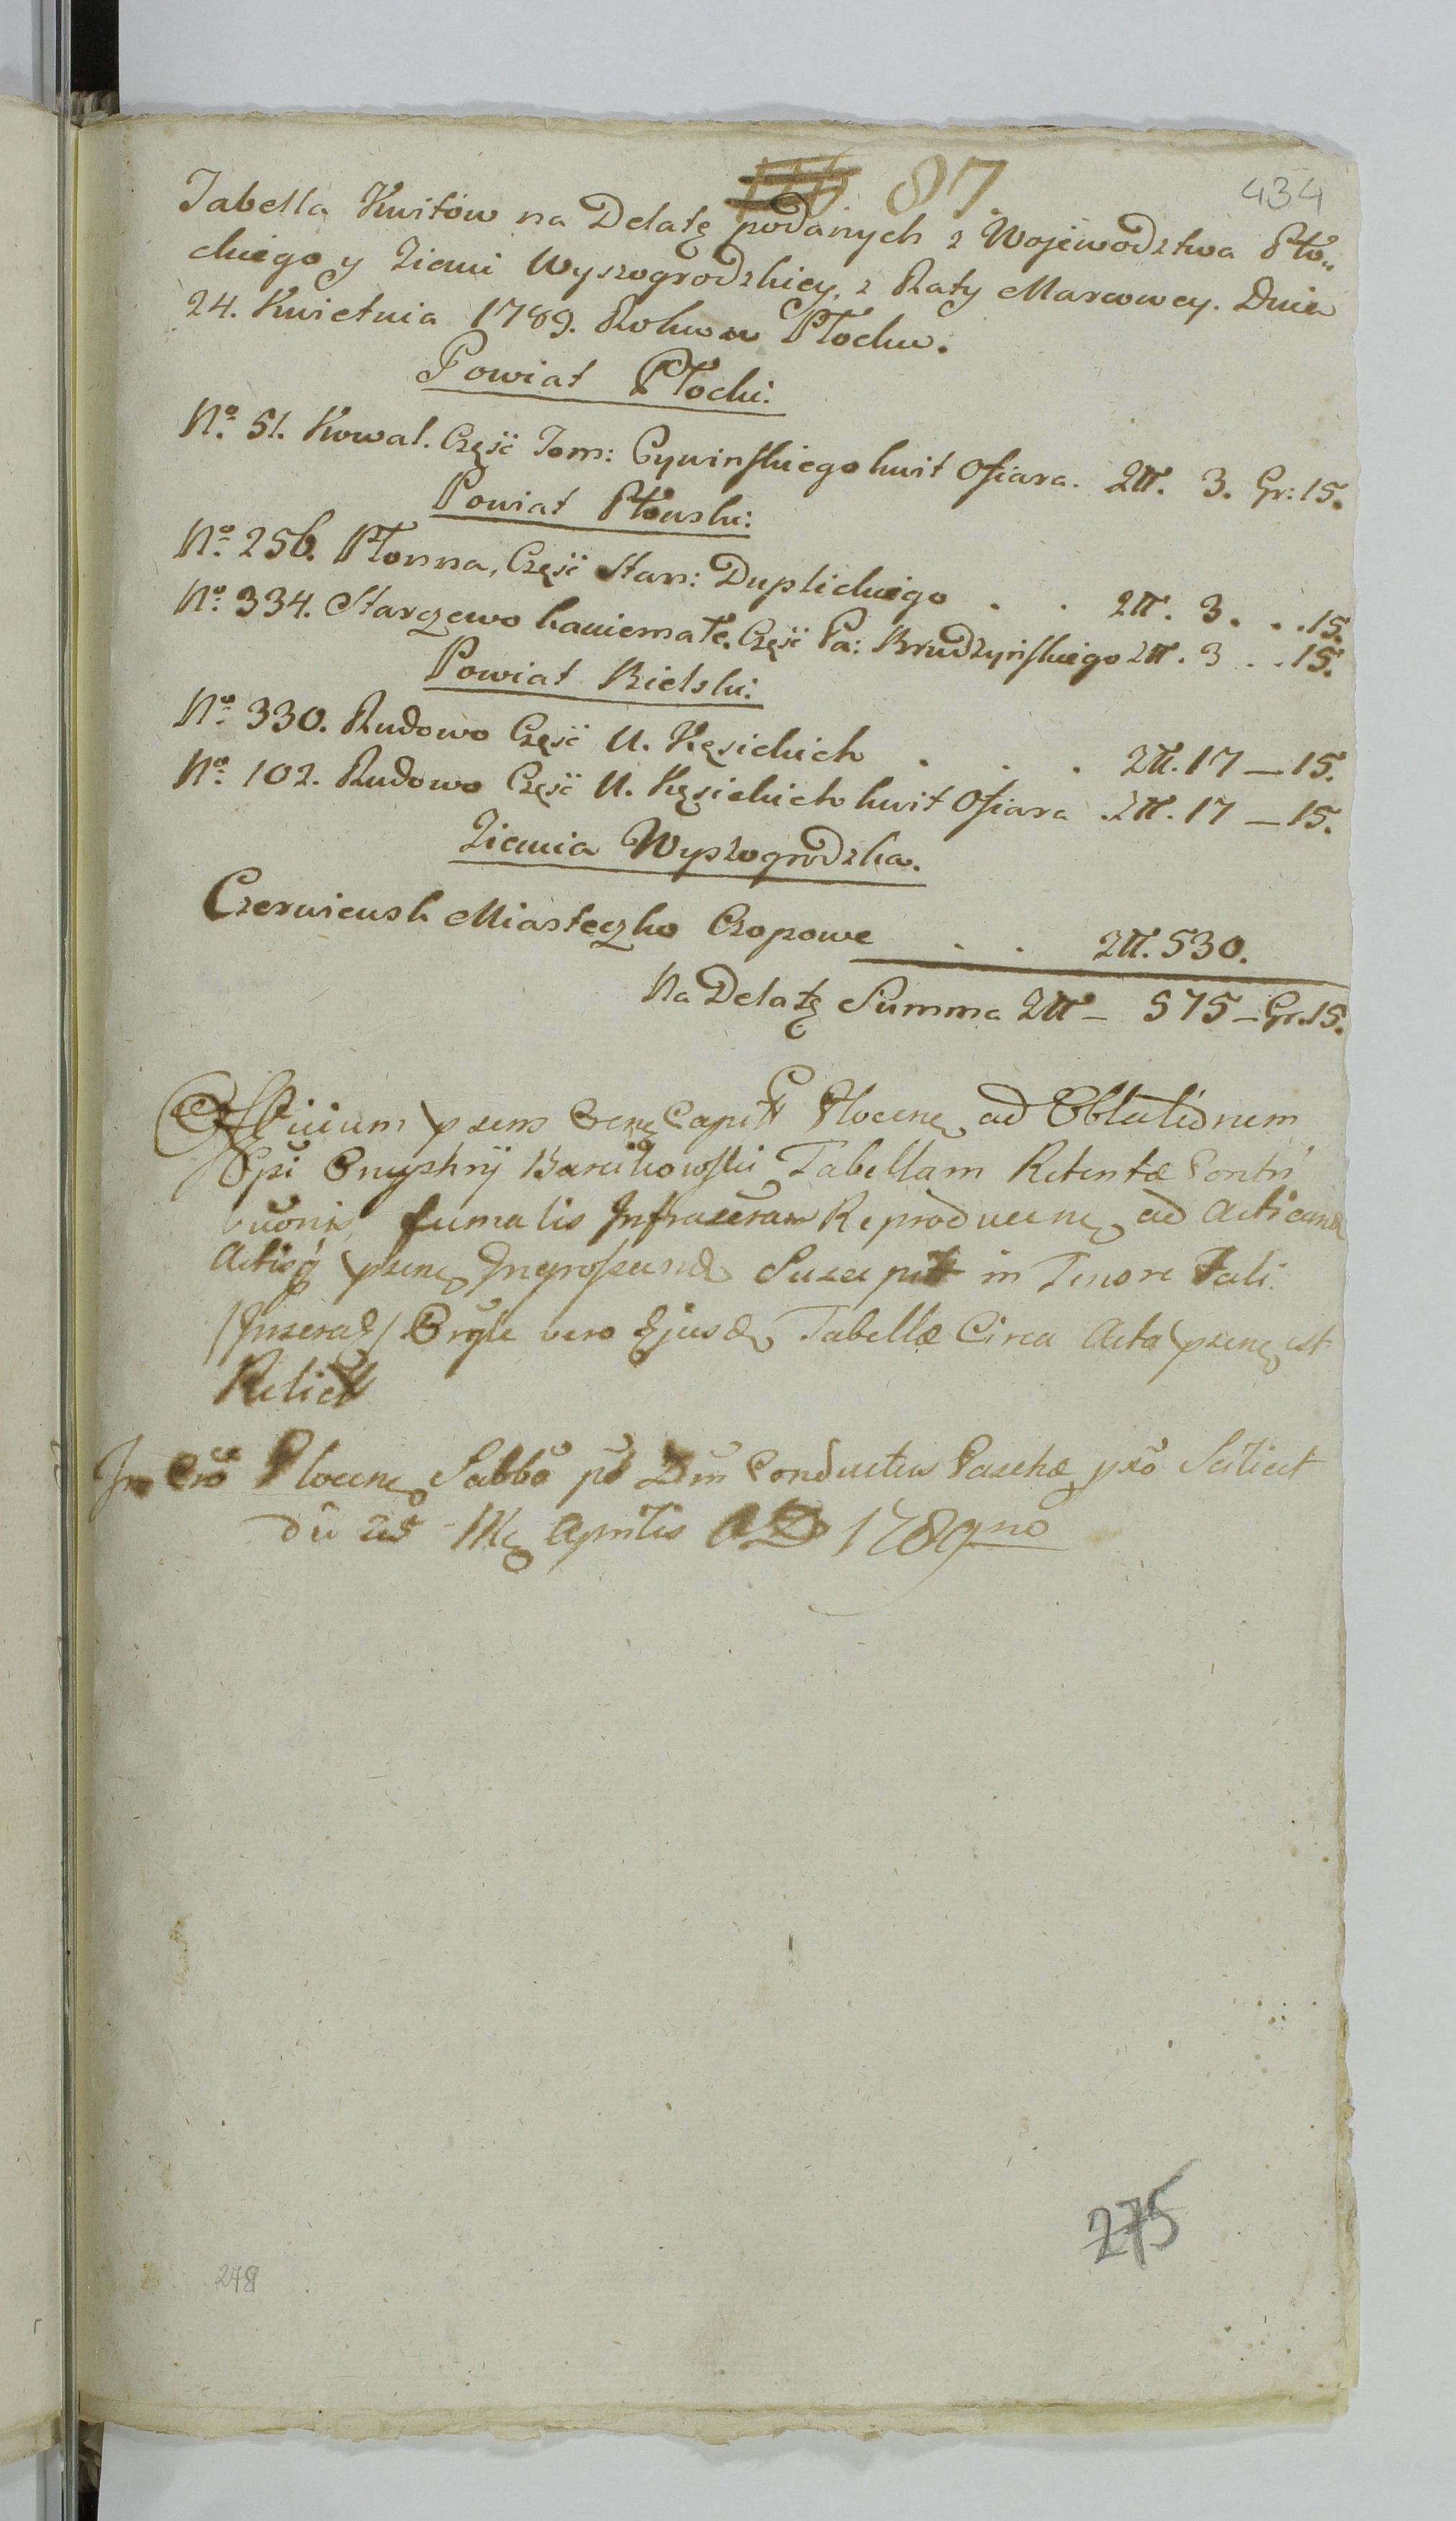 87.
434
Tabella Kwitow na Delatę podanych z Wojewodztwa Pło„
ckiego y Ziemi Wyszogrodzkiey, z Raty Marcowey. Dnia
24. Kwietnia 1789. Roku w Płocku.
Powiat Płocki:
No. 51. Kowal. Część Tom: Cywinskiego kwit Ofiara. Złł. 3. Gr: 15.
Powiat Płonski:
No. 256. Płonna, Część Stan: Duplickiego . . Złł. 3. . . 15.
No. 334. Starczewo Część Pa: Brudzyńskiego Złł. 3 . . 15.
Powiat Bielski:
No. 330. Rudowo Część U. Kęsickich . . . Złł. 17 — 15.
No. 102. Rudowo Część U. Kęsickich kwit Ofiara . Złł. 17 — 15.
Ziemia Wyszogrodzka.
Czerwiensk Miasteczko Czopowe . . Złł. 530.
Na Delatę Summa Złł — 575 — Gr. 15.
Officium Capitt Plocen ad Oblationem
Onuphrij Tabellam Retentæ Contri
fumalis Reproducen ad
in Tenore Tali.
vero Ejusd Tabellæ Circa Acta psen est
Relict
Plocen Sabbo Conductus Paschæ Scilicet
25 Aprilis AD 1789no
275